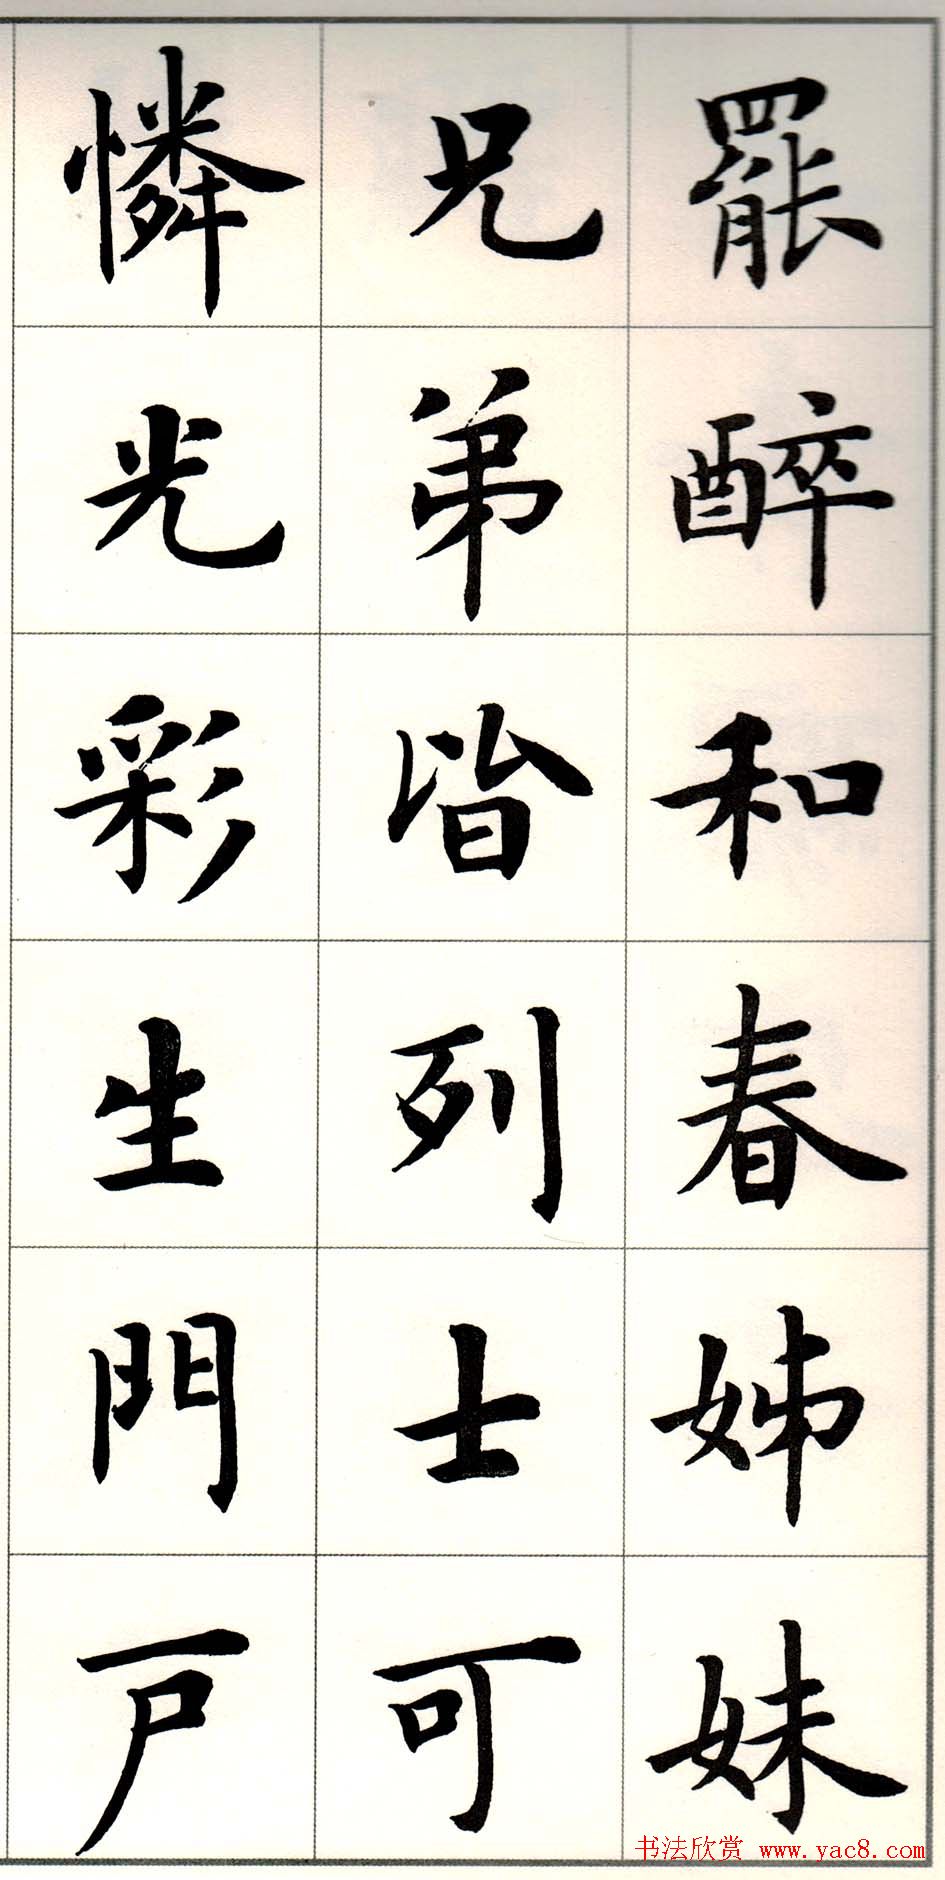 罷醉和春姊妹
兄弟皆列士可
憐光彩生門戶
书法欣赏 www.yac8.com